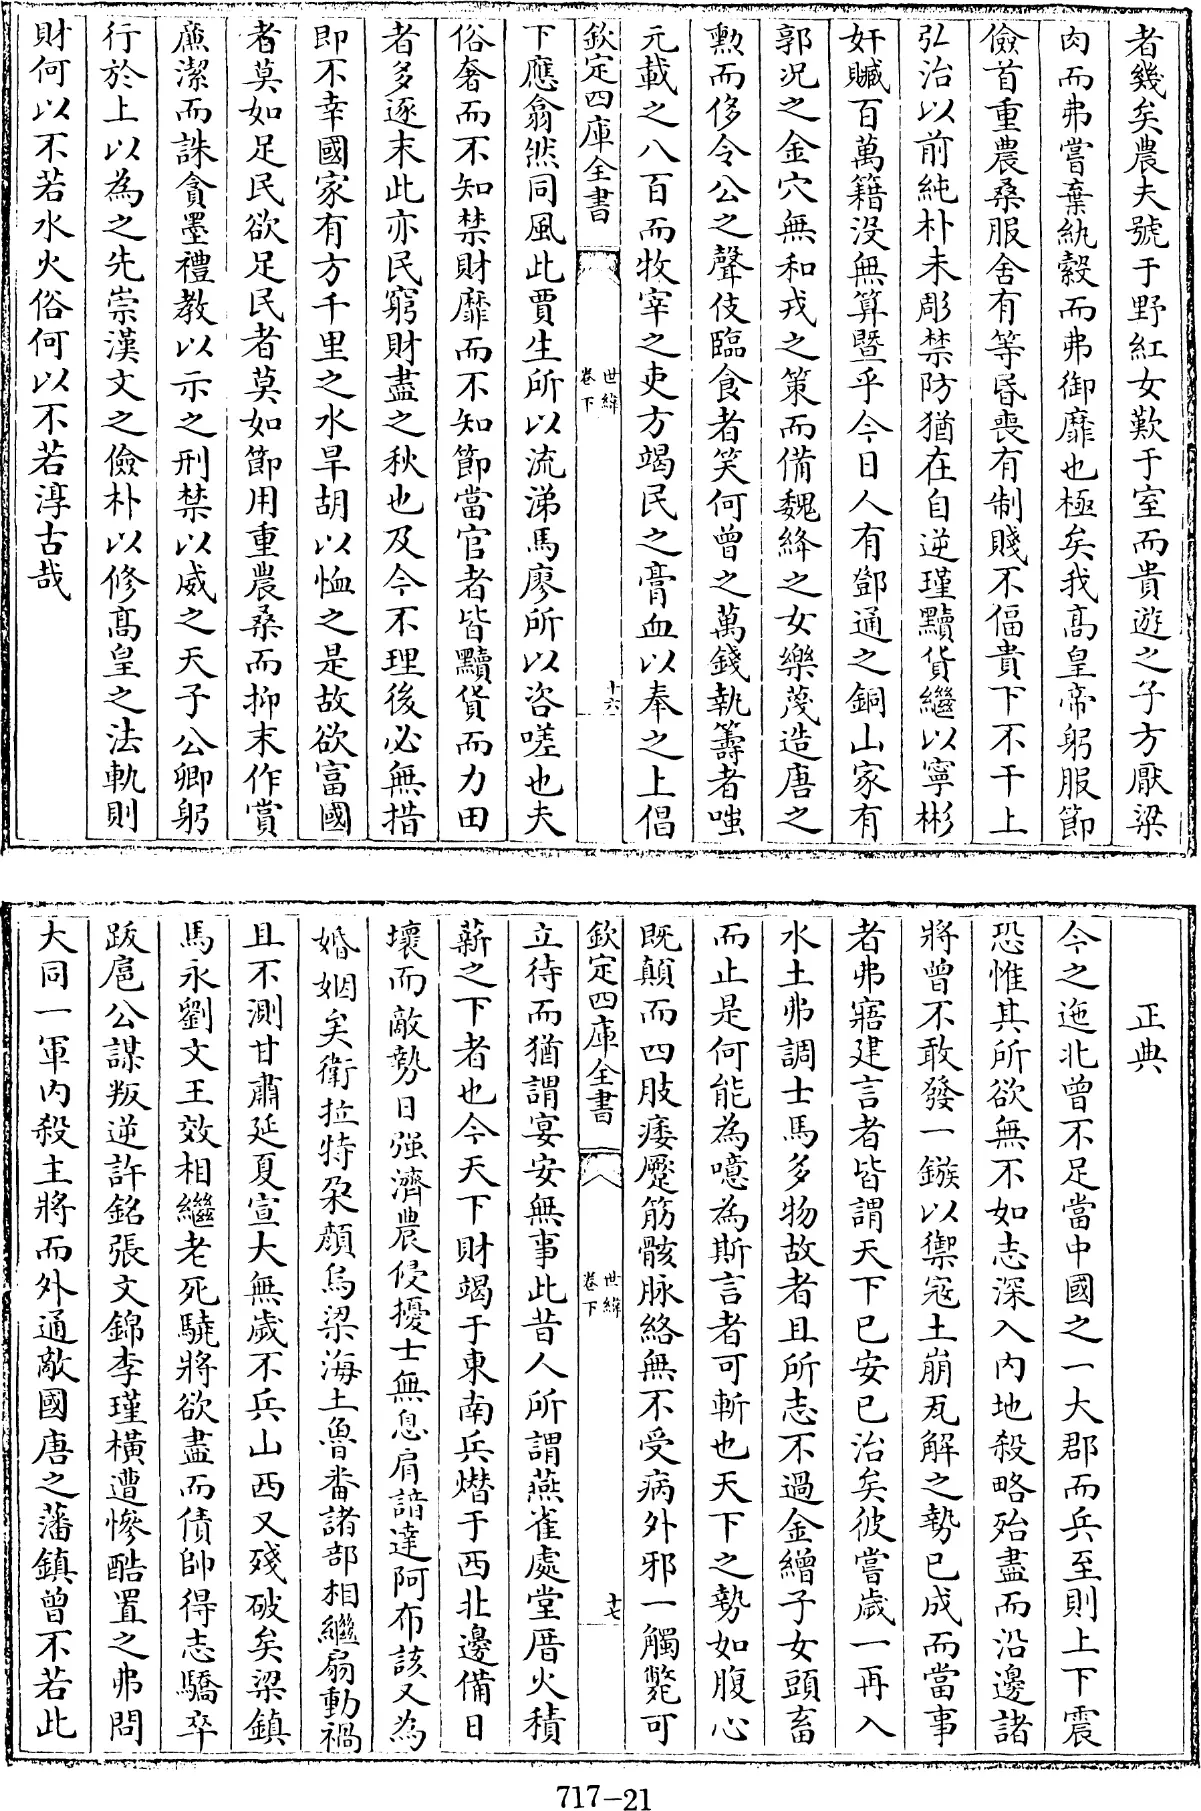 者幾矣農夫號于野紅女歎于室而貴遊之子方厭粱
肉而弗嘗棄紈縠而弗御靡也極矣我髙皇帝躬服節
儉首重農桑服舍有等昏喪有制賤不偪貴下不干上
弘治以前純朴未彫禁防猶在自逆瑾黷貨繼以寧彬
奸贓百萬籍没無算暨乎今日人有鄧通之銅山家有
郭況之金穴無和戎之策而備魏絳之女樂蔑造唐之
勲而侈令公之聲伎臨食者笑何曾之萬錢執籌者嗤
元載之八百而牧宰之吏方竭民之膏血以奉之上倡
欽定四庫全書
世緯
卷下
十六
下應翕然同風此賈生所以流涕馬廖所以咨嗟也夫
俗奢而不知禁財靡而不知節當官者皆黷貨而力田
者多逐末此亦民窮財盡之秋也及今不理後必無措
即不幸國家有方千里之水旱胡以恤之是故欲富國
者莫如足民欲足民者莫如節用重農桑而抑末作賞
亷潔而誅貪墨禮教以示之刑禁以威之天子公卿躬
行於上以為之先崇漢文之儉朴以修髙皇之法軌則
財何以不若水火俗何以不若淳古哉
正典
今之迤北曾不足當中國之一大郡而兵至則上下震
恐惟其所欲無不如志深入内地殺略殆盡而沿邊諸
將曾不敢發一鏃以禦寇土崩瓦解之勢已成而當事
者弗寤建言者皆謂天下已安已治矣彼嘗歲一再入
水土弗調士馬多物故者且所志不過金繒子女頭畜
而止是何能為噫為斯言者可斬也天下之勢如腹心
既顛而四肢痿蹷筋骸脉絡無不受病外邪一觸斃可
欽定四庫全書
世緯
卷下
十七
立待而猶謂宴安無事此昔人所謂燕雀處堂厝火積
薪之下者也今天下財竭于東南兵熸于西北邊備日
壞而敵勢日强濟農侵擾士無息肩諳達阿布該又為
婚姻矣衛拉特朶顔烏梁海土魯番諸部相繼扇動禍
且不測甘肅延夏宣大無歲不兵山西又殘破矣梁鎮
馬永劉文王效相繼老死驍將欲盡而債帥得志驕卒
跋扈公謀叛逆許銘張文錦李瑾横遭慘酷置之弗問
大同一軍内殺主將而外通敵國唐之藩鎮曾不若此
717-21